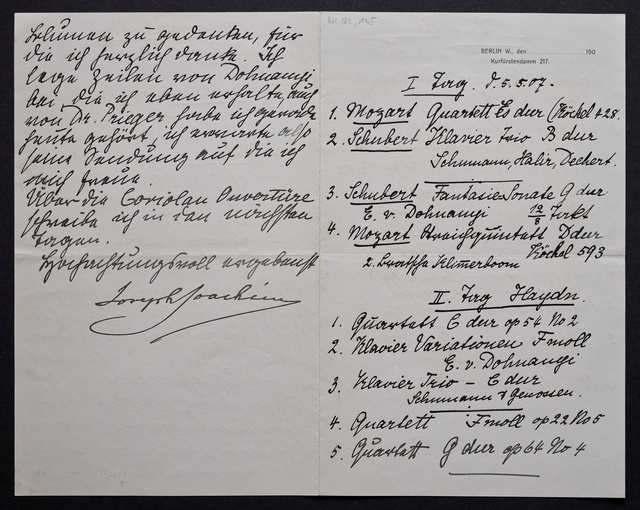 Blumen zu gedenken, für
die ich herzlich danke. Ich
lege Zeilen von Dohnangi
bei die ich eben erhalte, auch
von Dr. Prieger habe ich gerade
heute gehört, ich erwarte also
seine Sendung auf die ich
mich freue.
Über die Coriolan Ouvertüre
schreibe ich in den nächsten
Tagen.
Hochachtungsvoll ergebenst
Joseph Joachim
BERLIN W., den 190
Kurfürstendamm 217.
I Tag. d. 5.5.07.
1. Mozart Quartett Es dur (Köchel 428.
2. Schubert Klavier Trio B dur
Schumann, Halir, Dechert.
3. Schubert Fantasie Sonate G dur
E. v. Dohnangi 12/8 Takt
4. Mozart Streichquintett D dur
2. Bratsche Klinerboom Köchel 593
II. Tag Haydn.
1. Quartett C dur op 54 No 2
2. Klavier Variationen F moll
E. v. Dohnangi
3. Klavier Trio – C dur
Schumann & Genossen.
4. Quartett F moll op 22 No 5
5. Quartett G dur op 64 No 4